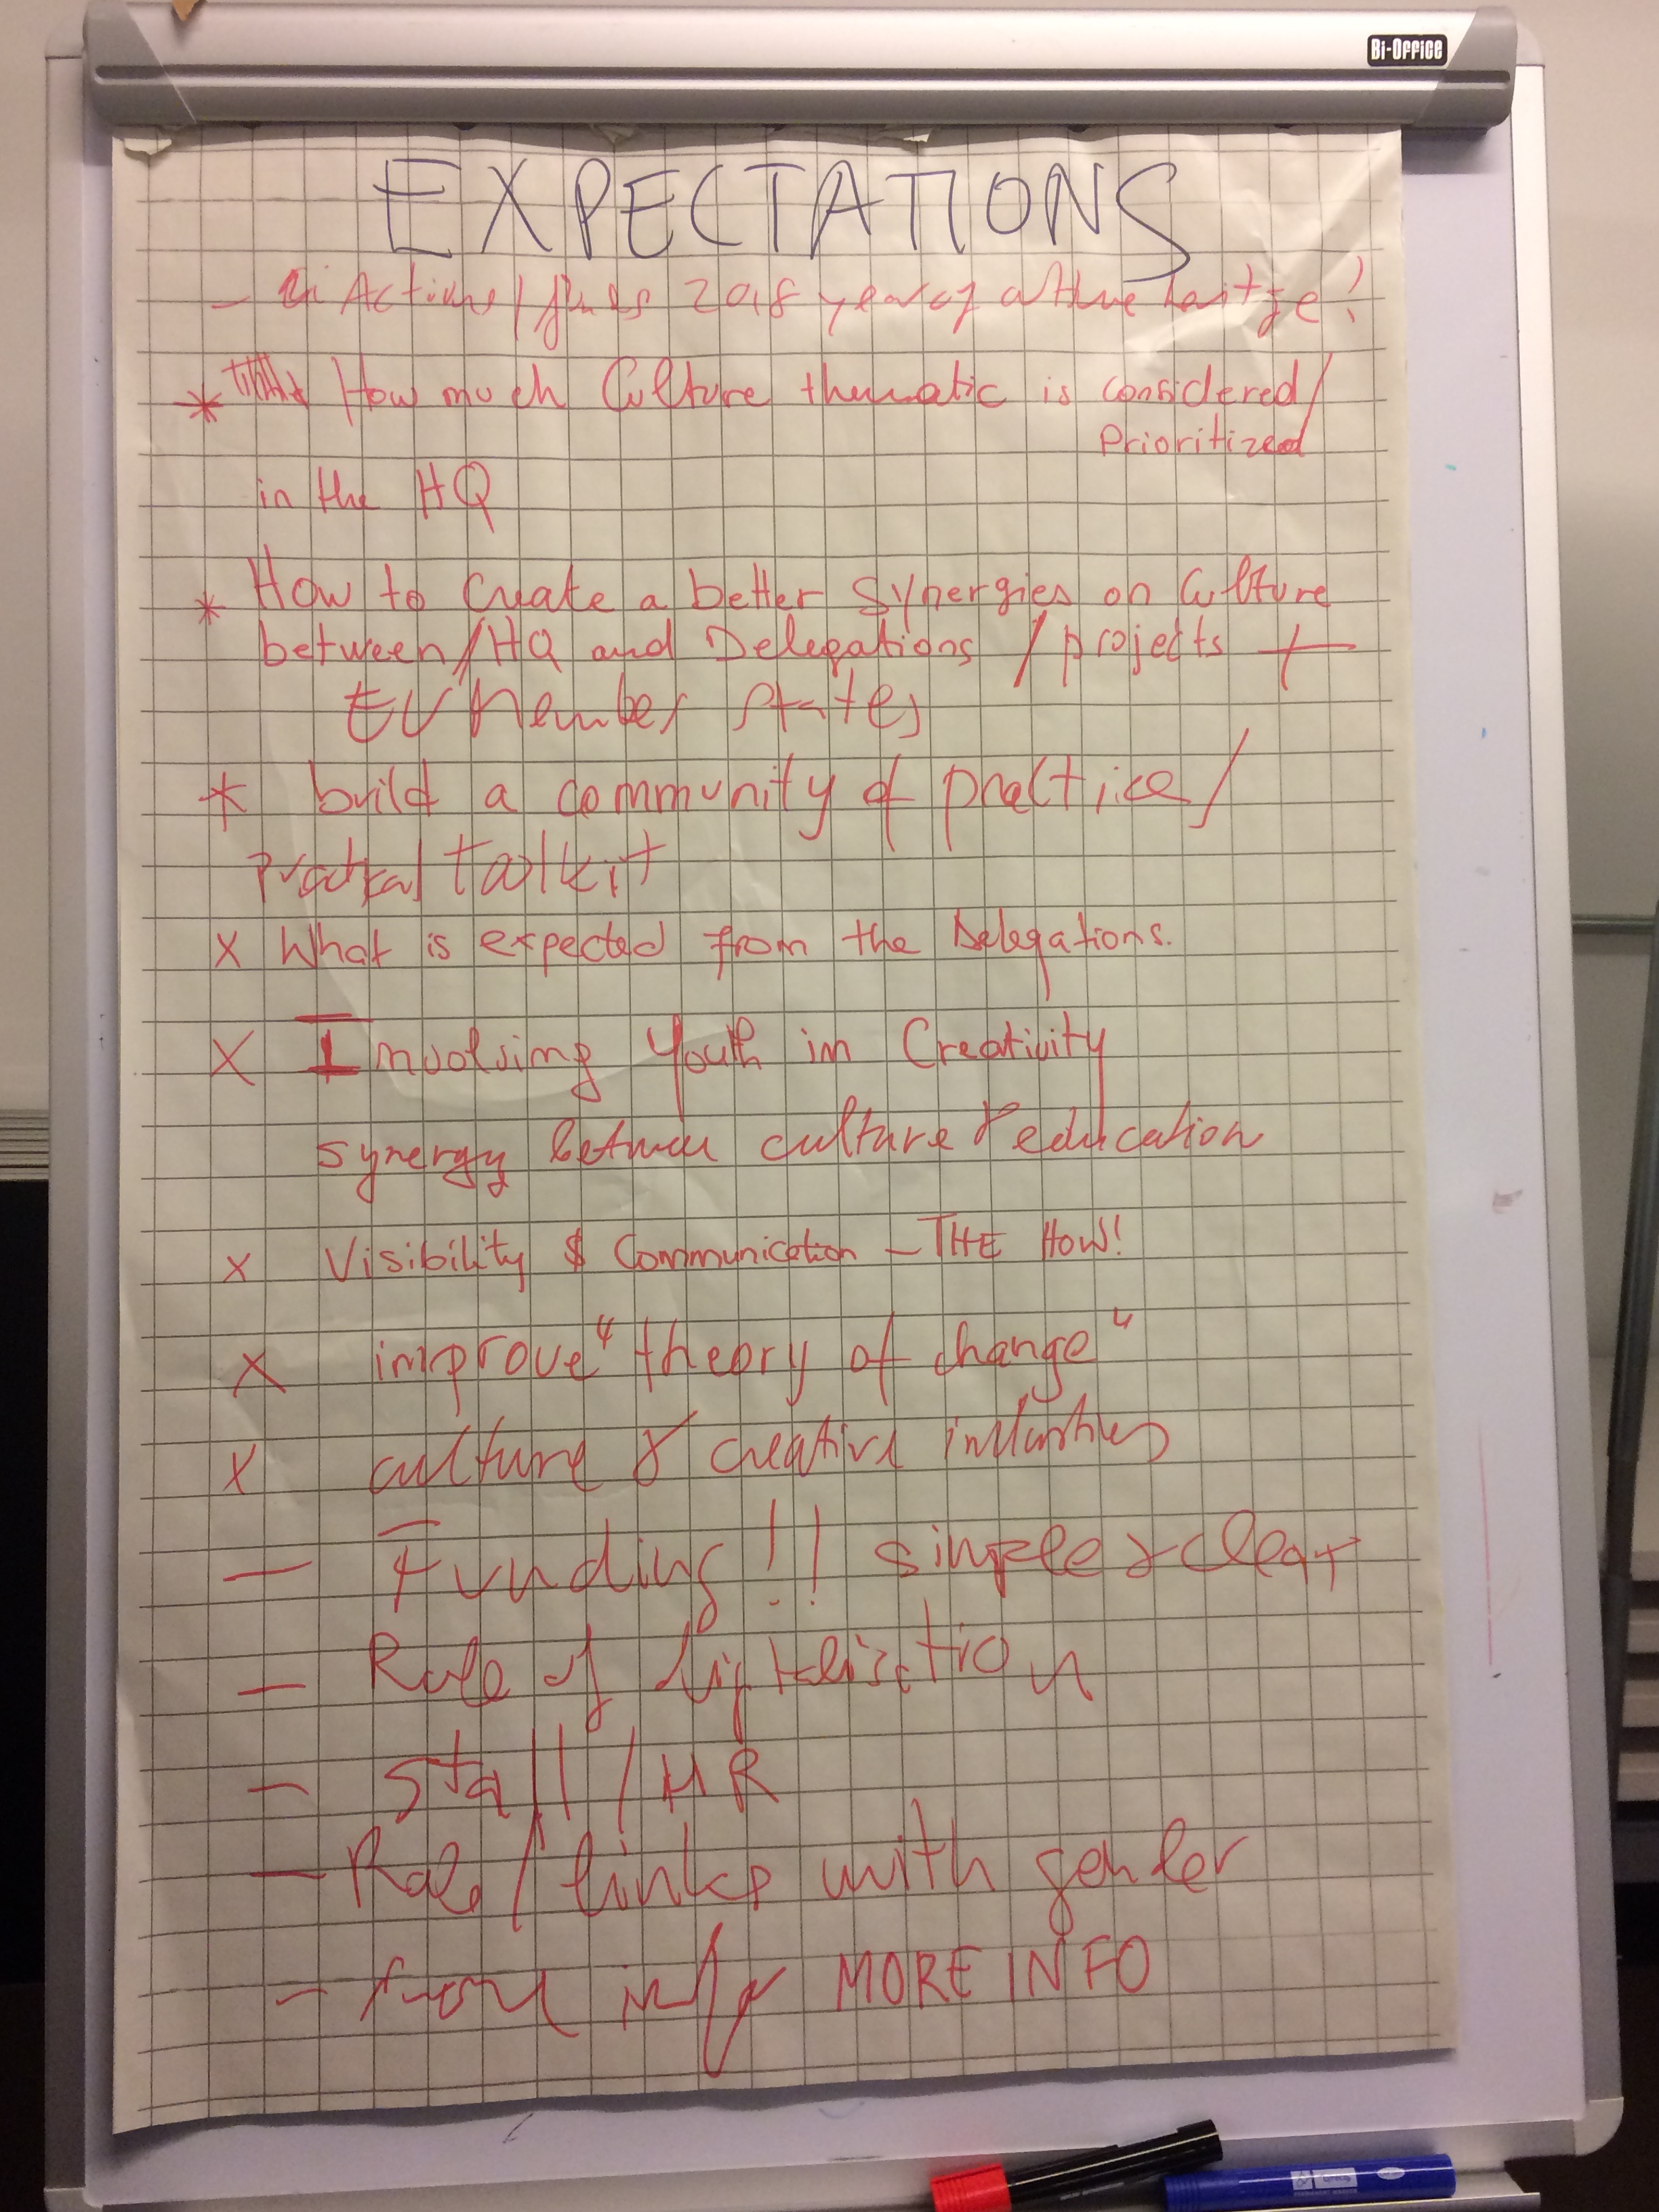 Bi-Office
EXPECTATIONS
- Actions / funds 2018 year of culture heritage!
* How much Culture thematic is considered/
Prioritized
in the HQ
* How to create a better synergies on Culture
between/HQ and Delegations / projects +
EU Member States
* build a community of practice/
Practical toolkit
x What is expected from the Delegations.
x Involving Youth in Creativity
synergy between culture & education
x Visibility & Communication - THE HOW!
x improve "theory of change"
x culture & creative industries
- Funding!! simple & clear
- Role of digitalisation
- Staff / HR
- Role / links with gender
- MORE INFO